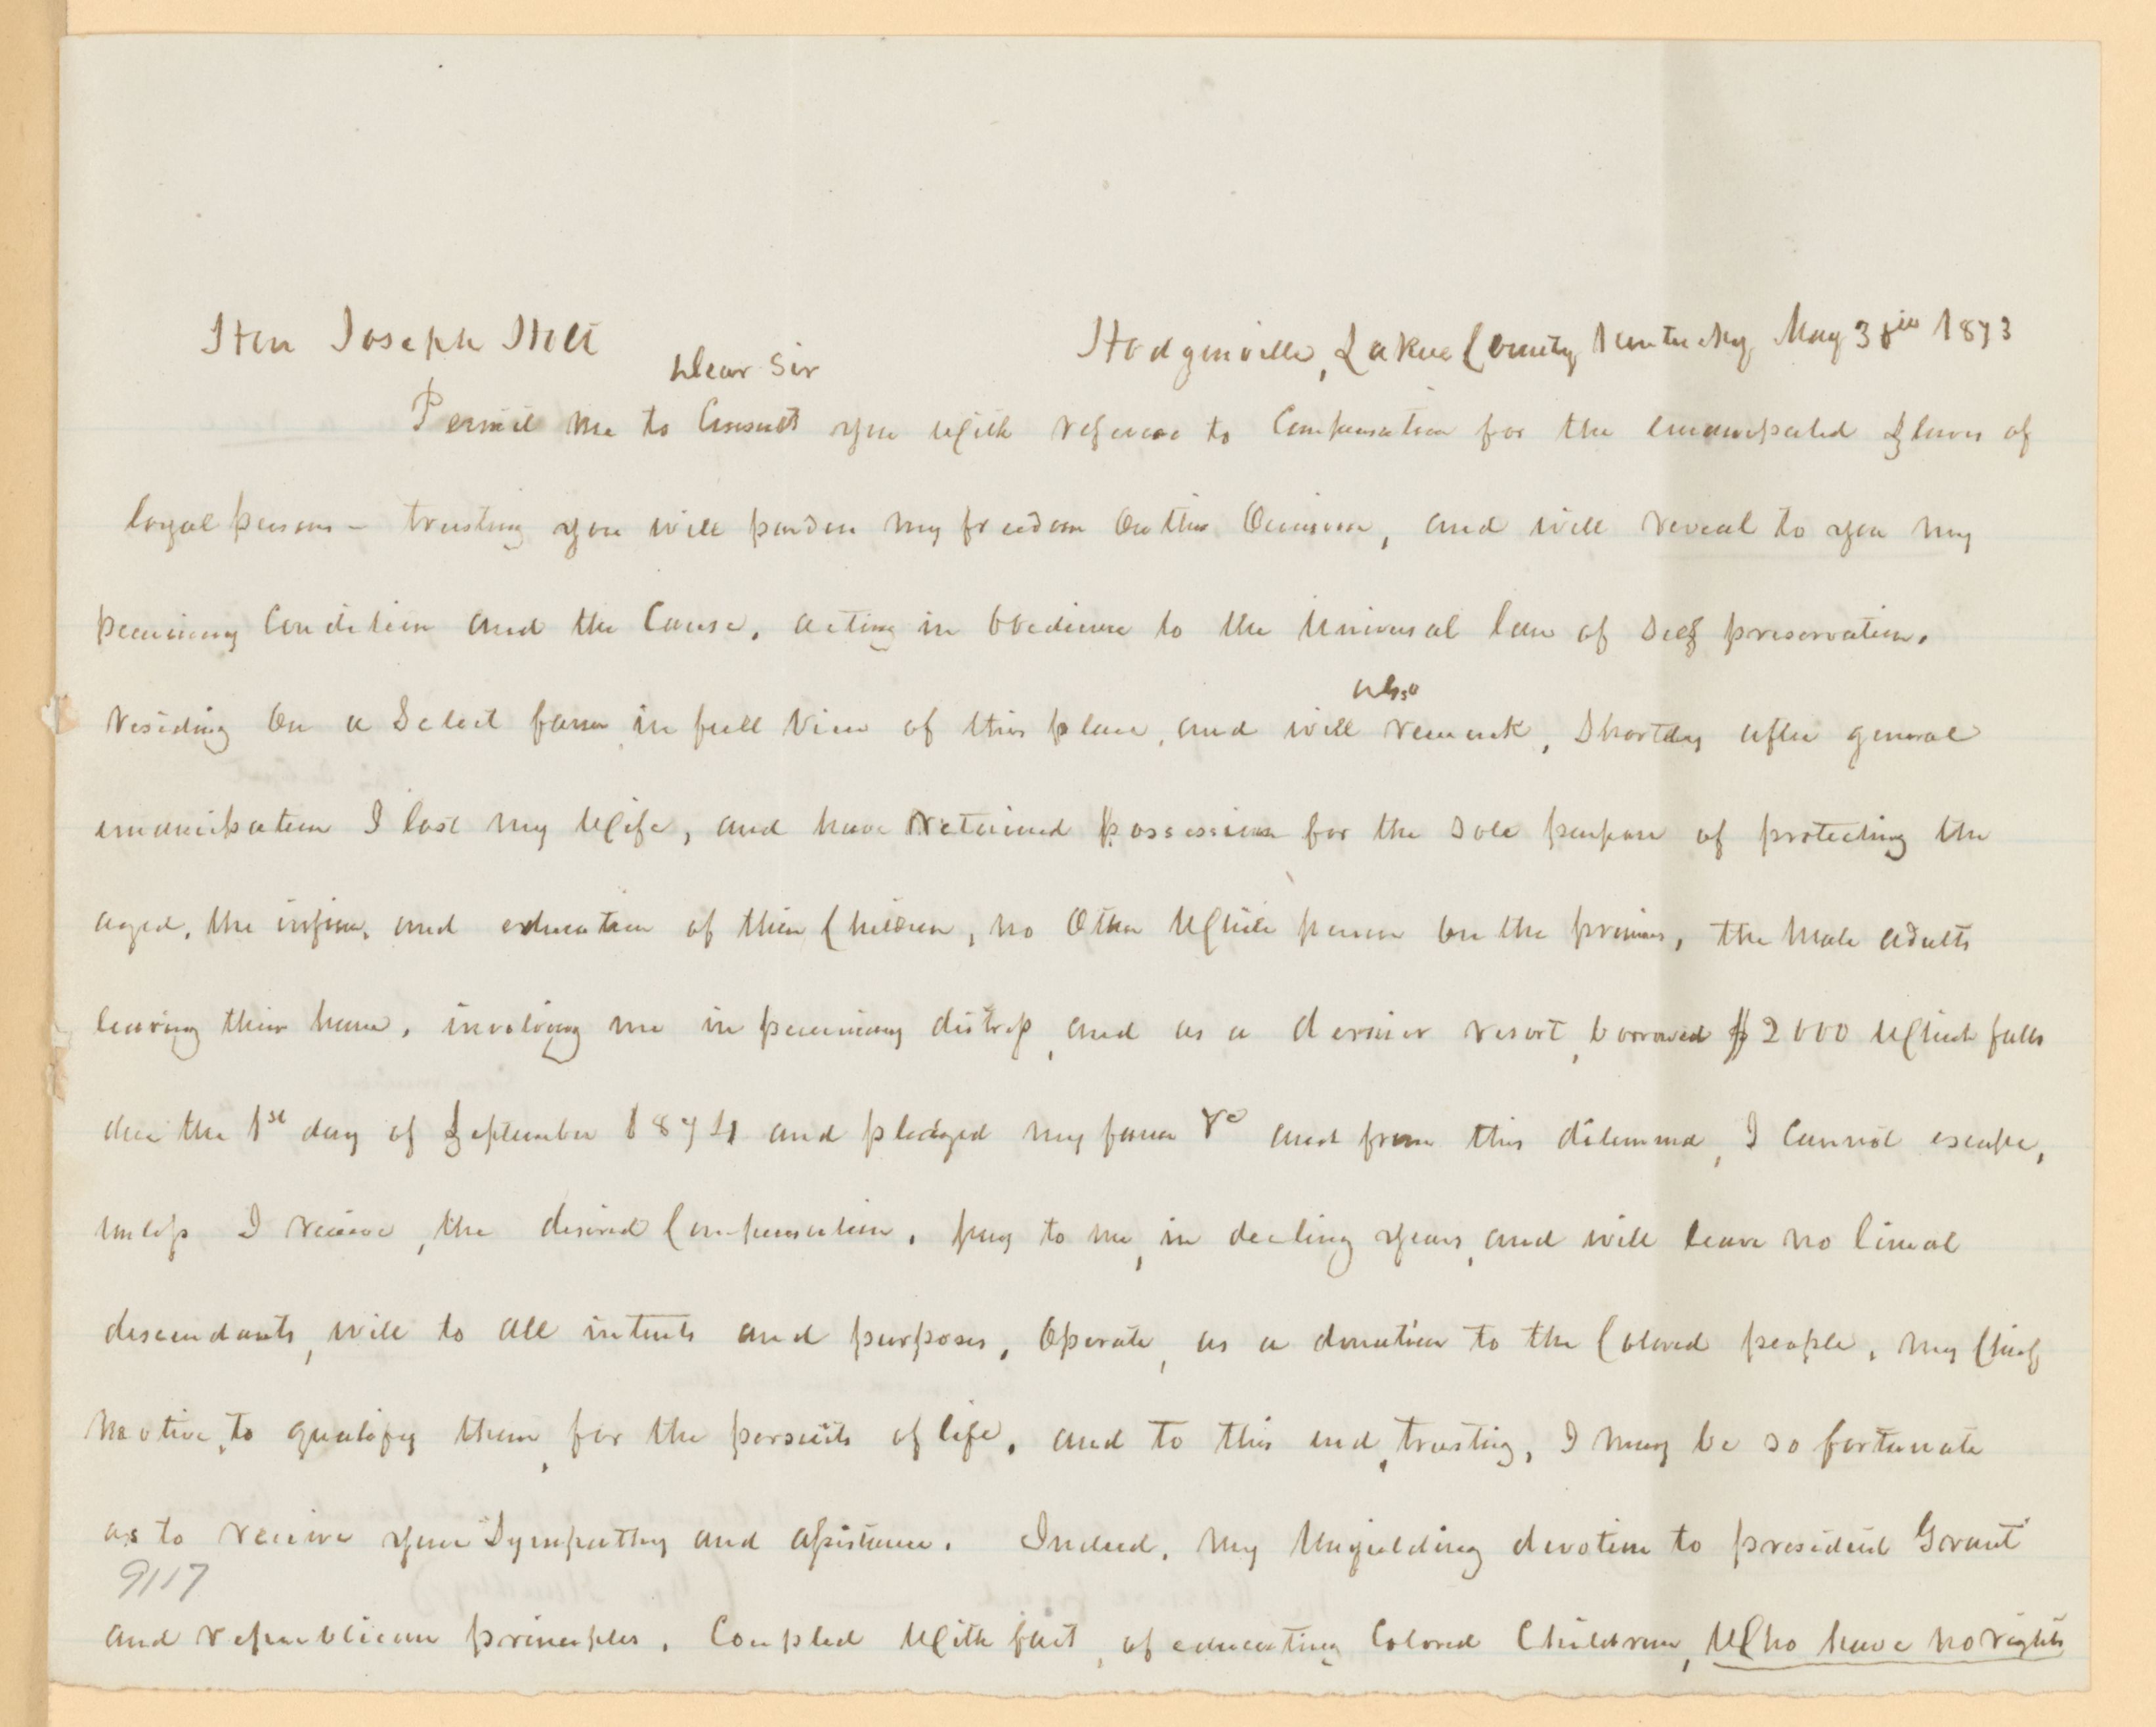 Hon Joseph Holt
Hodgenville, Larue County Kentucky May 30th 1873
Dear Sir
Permit me to Consult you With reference to Compensation for the emancipated Slaves of
loyal persons - trusting you will pardon my freedom On this Occasion, and will reveal to you my
pecuniary Condition and the Cause, acting in Obedience to the Universal law of Self preservation.
residing On a Select farm in full View of this place, and will also remark, Shortly after general
emancipation I lost my Wife, and have retained possession for the Sole purpose of protecting the
aged, the infirm, and education of their Children, no Other White person on the premises, the Male adults
leaving their home, involving me in pecuniary distress, and as a dernier resort, borrowed $2000 Which falls
due the 1st day of September 1874 and pledged my farm &c and from this dilemma, I Cannot escape,
unless I receive, the desired Compensation, pay to me, in decling years, and will leave no lineal
descendants, will to all intents and purposes, Operate, as a donation to the Colored people, my Chief
Motive, to qualify them, for the persuits of life, and to this end, trusting, I may be so fortunate
as to receive your Sympathy and assistance. Indeed, my Unyielding devotion to president Grant
9117
and republican principles, Coupled With fact, of educating Colored Children, Who have no rights